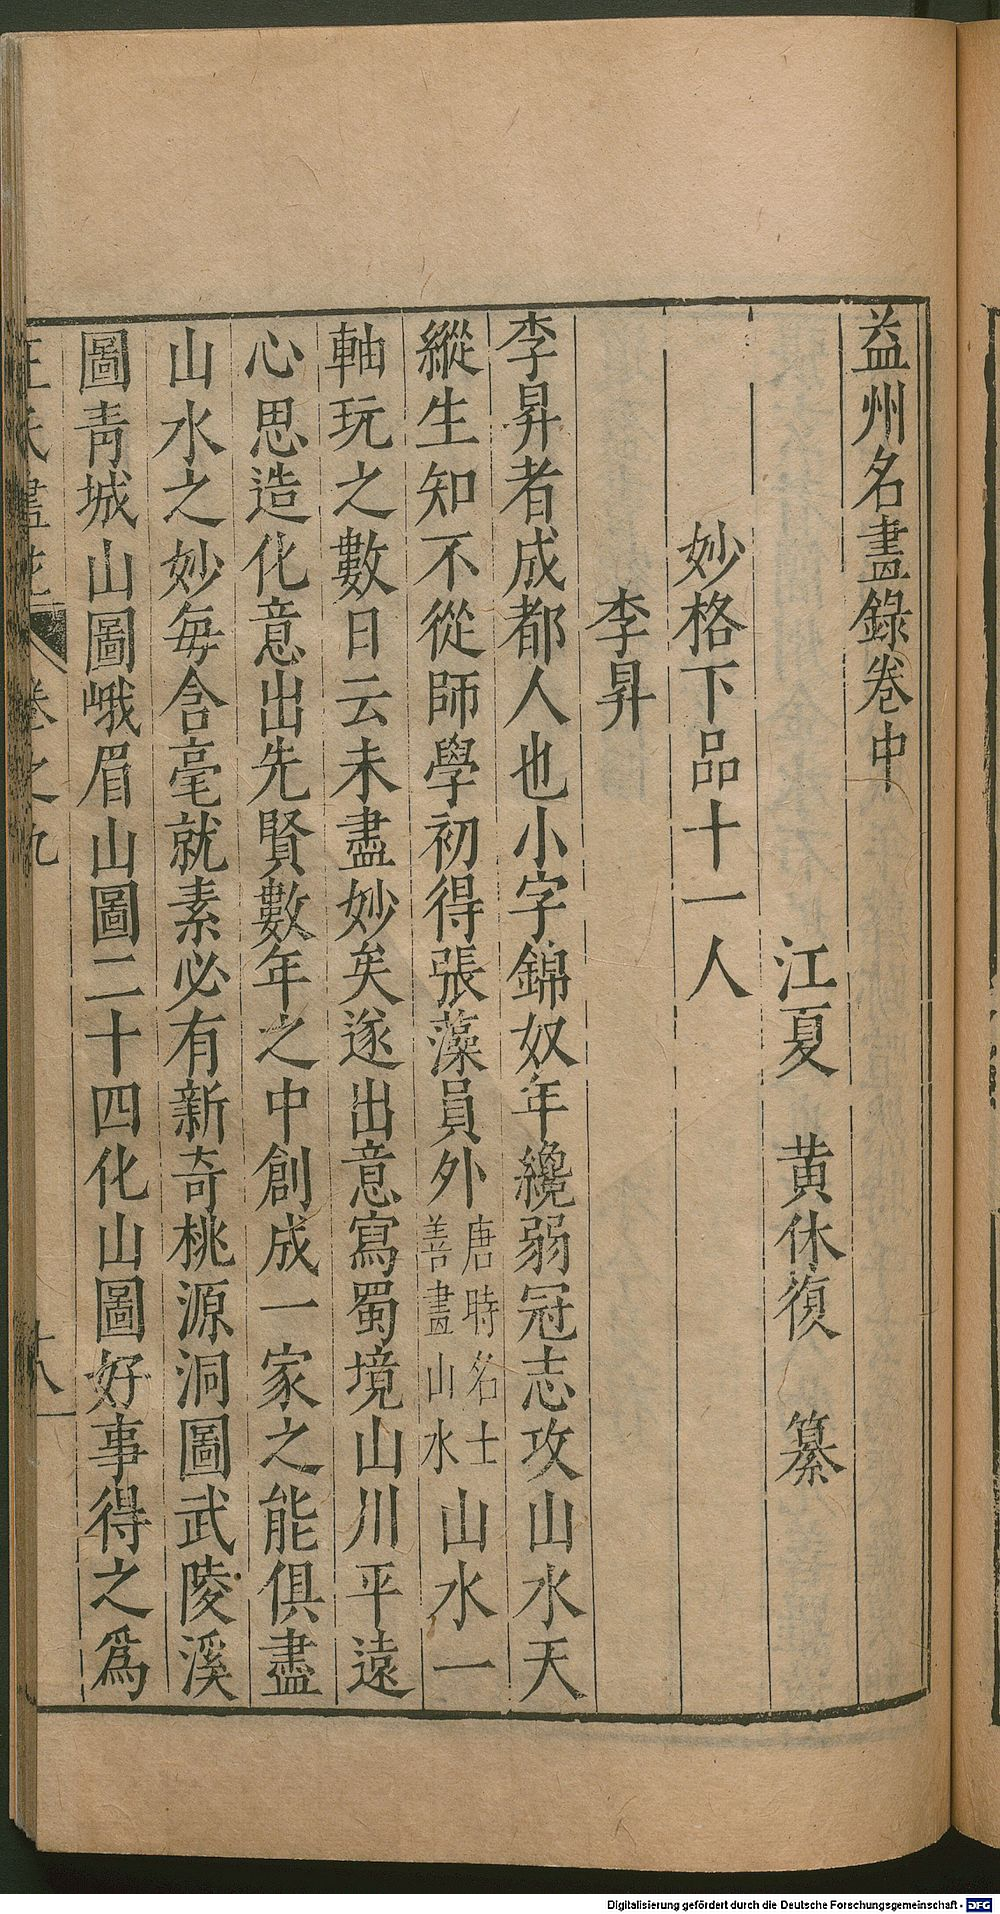 益州名畫錄卷中
江夏 黃休復 纂
妙格下品十一人
李昇
李昇者成都人也小字錦奴年纔弱冠志攻山水天
縱生知不從師學初得張藻員外唐時名士善畫山水山水一
軸玩之數日云未盡妙矣遂出意寫蜀境山川平遠
心思造化意出先賢數年之中創成一家之能俱盡
山水之妙每含毫就素必有新奇桃源洞圖武陵溪
圖青城山圖峨眉山圖二十四化山圖好事得之為
王氏畫苑 卷之九 十八
Digitalisierung gefördert durch die Deutsche Forschungsgemeinschaft - DFG